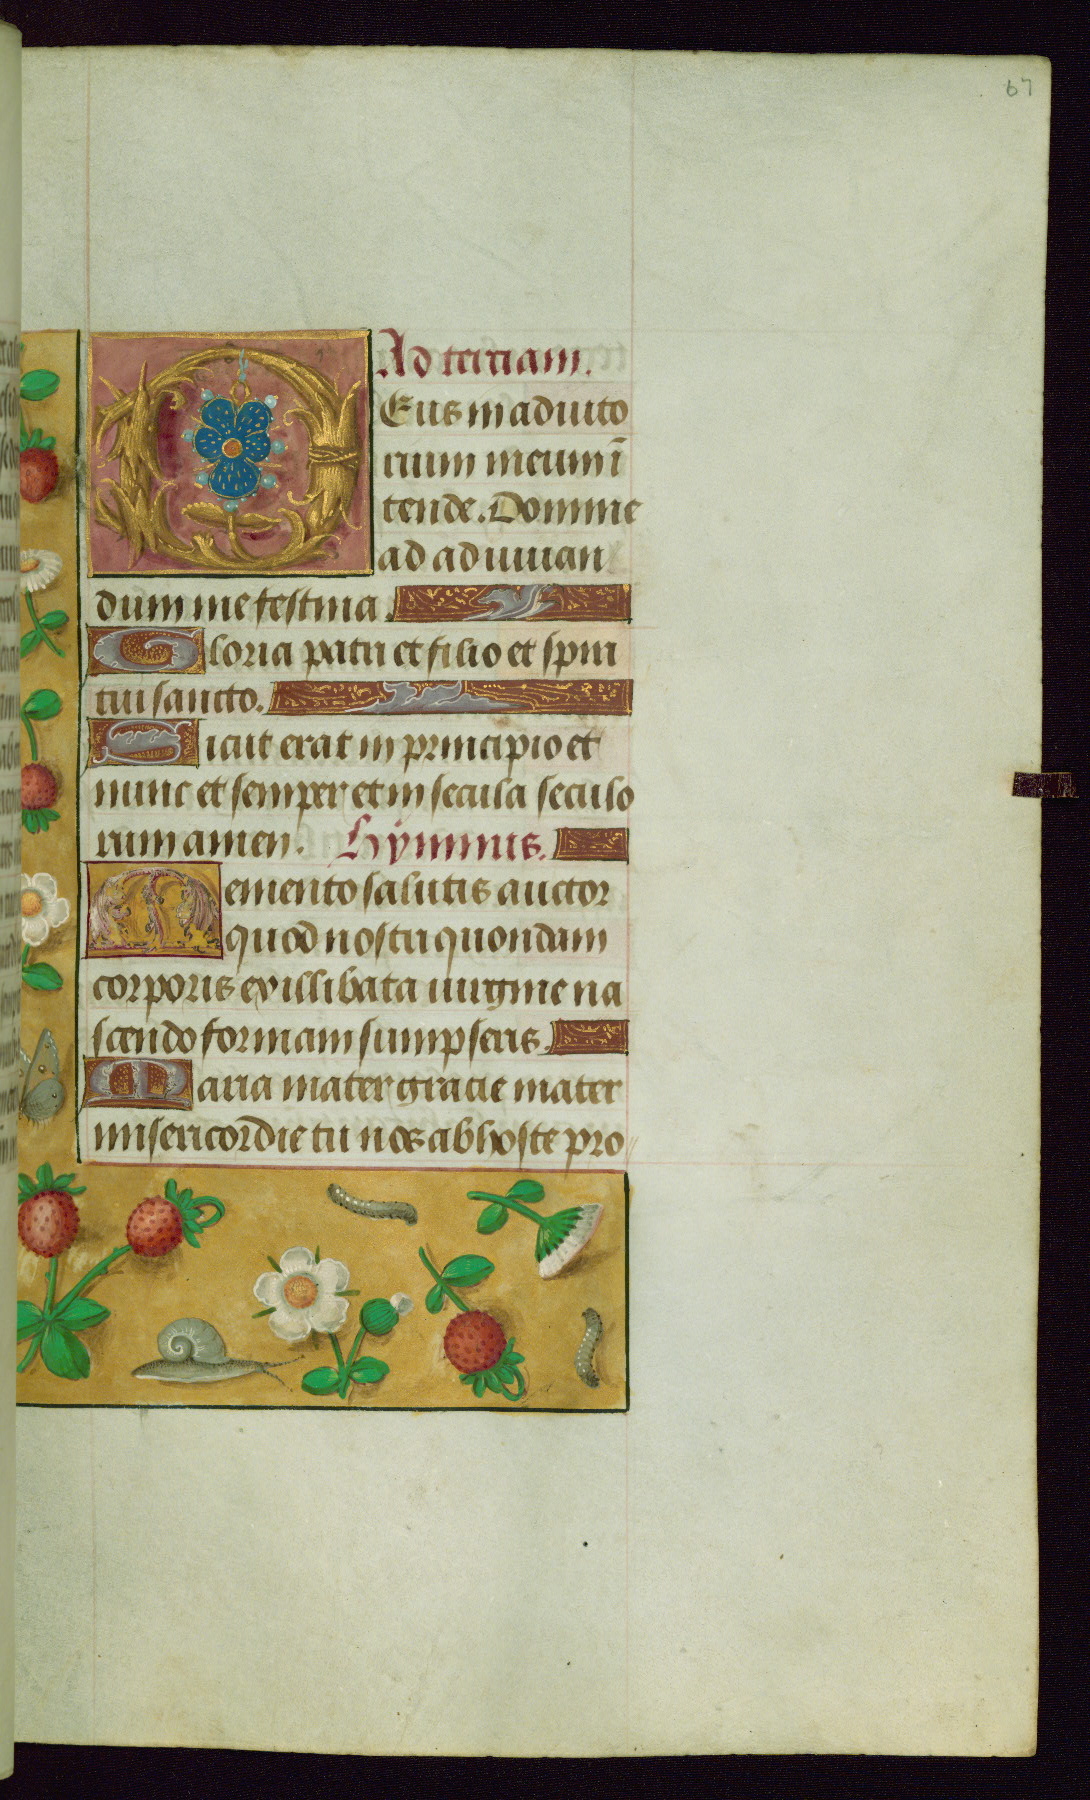 67
Ad terciam.
DEus in adiuto
rium meum ī
tende. Domine
ad adiuuan
dum me festina.
Gloria patri et filio et spiri
tui sancto.
Sicut erat in principio et
nunc et semper et in secula seculo
rum amen. Hymnus.
Memento salutis auctor
quod nostri quondam
corporis ex illibata uirgine na
scendo formam sumpseris.
Maria mater gracie mater
misericordie tu nos ab hoste pro